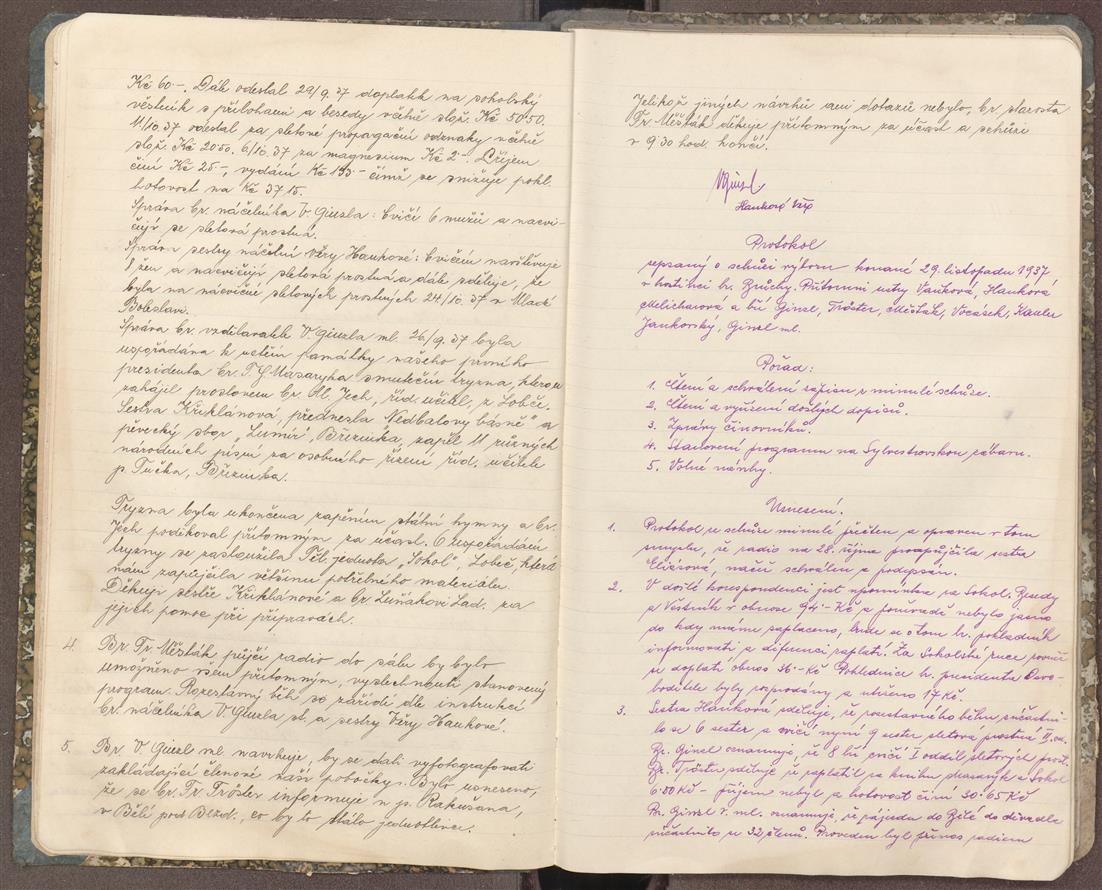 Kč 60.-. Dále odeslal 29/9.37 doplatek na sokolský
věstník s přílohami a besedy včetně slož. Kč 50.50.
11/10.37 odeslal za sletové propagační odznaky včetně
slož. Kč 20.50. 6/10.37 za magnesium Kč 2.-. Příjem
činí Kč 25.-, vydání Kč 133.- čímž se snižuje pokl.
hotovost na Kč 37.15.
Zpráva br. náčelníka V. Ginzla: Cvičí 6 mužů a nacvi-
čují se sletová prostná.
Zpráva sestry náčelní Věry Hankové: Cvičení navštěvuje
8 žen a nacvičují sletová prostná a dále sděluje, že
byla na nácvičné sletových prostných 24/10.37 v Mladé
Boleslavi.
Zpráva br. vzdělavatele V. Ginzla ml. 26/9.37 byla
uspořádána k uctění památky našeho prvního
presidenta br. T. G. Masaryka smuteční tryzna, kterou
zahájil proslovem br. Al. Jech, říd. učitel, z Lobče.
Sestra Křiklánová, přednesla "Nedbalovy básně" a
pěvecký sbor "Lumír" Březinka, zapěl 11 různých
národních písní za osobního řízení říd. učitele
p. Tučka, Březinka.
Tryzna byla ukončena zapěním státní hymny a br.
Jech poděkoval přítomným za účast. O uspořádání
tryzny se zasloužila Těl. jednota "Sokol", Lobeč, která
nám zapůjčila většinu potřebného materiálu.
Děkuji sestře Křiklánové a br. Luňákovi Lad. za
jejich pomoc při přípravách.
4. Br. Fr. Měšťák půjčí radio do sálu by bylo
umožněno všem přítomným, vyslechnouti stanovený
program. Rozestavný běh se zařídí dle instrukcí
br. náčelníka V. Ginzla st. a sestry Věry Hankové.
5. Br. V. Ginzl ml. navrhuje, by se dali vyfotografovati
zakládající členové naší pobočky. Bylo usneseno,
že se br. Fr. Tröster informuje u p. Rakušana,
v Bělé pod Bezd., co by to stálo jednotlivce.
Jelikož jiných návrhů ani dotazů nebylo, br. starosta
Fr. Měšťák děkuje přítomným za účast a schůzi
v 9.30 hod. končí.
VGinzl
Hanková Věra
Protokol
sepsaný o schůzi výboru konané 29. listopadu 1937
v hostinci br. Zruchy. Přítomni sestry Vaníková, Hanková
Melicharová a bři Ginzl, Tröster, Měšťák, Vocásek, Kauler
Jankovský, Ginzl ml.
Pořad:
1. Čtení a schválení zápisu z minulé schůze.
2. Čtení a vyřízení došlých dopisů.
3. Zprávy činovníků.
4. Stanovení programu na Sylvestrovskou zábavu.
5. Volné návrhy.
Usnesení.
1. Protokol ze schůze minulé přečten a opraven v tom
smyslu, že radio na 28. října propůjčila sestra
Eliášová, načež schválen a podepsán.
2. V došlé korespondenci jest upomínka za Sokol. Besedy
a Věstník v obnose 94.- Kč a poněvadž nebylo jasno
do kdy máme zaplaceno, bude se o tom br. pokladník
informovati a diferenci zaplatí. Za Sokolské ruce rovněž
se doplatí obnos 36.- Kč. Pohlednice br. presidenta Osvo-
boditele byly rozprodány a utrženo 17 Kč.
3. Sestra Hanková sděluje, že rozestavného běhu súčastni-
lo se 6 sester a cvičí nyní 9 sester sletová prostná II. od.
Br. Ginzl oznamuje, že 8 bří cvičí I oddíl sletových prost.
Br. Tröster sděluje, že zaplatil za knihu Masaryk a Sokol
6.80 Kč - příjem nebyl a hotovost činí 30.65 Kč
Br. Ginzl V. ml. oznamuje, že zájezdu do Bělé do divadla
súčastnilo se 32 členů. Proveden byl přenos radiem